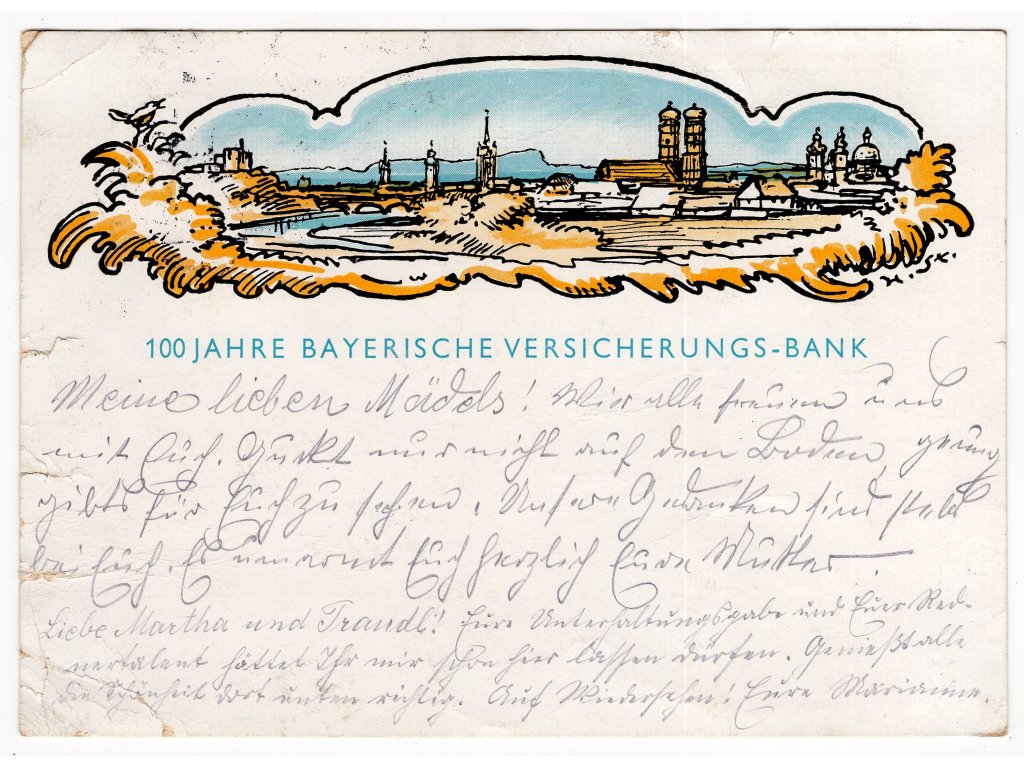 H. SK.
100 JAHRE BAYERISCHE VERSICHERUNGS-BANK
Meine lieben Mädels! Wir alle freuen uns
mit Euch. Guckt nur nicht auf den Boden, genug
gibts für Euch zu sehen. Unsere Gedanken sind stets
bei Euch. Es umarmt Euch herzlich Eure Mutter.
Liebe Martha und Traudl! Eure Unterhaltungsgabe und Euer Red-
nertalent hättet Ihr mir schon hier lassen dürfen. Genießt alle
die Schönheit dort unten richtig. Auf Wiedersehen! Eure Marianne.